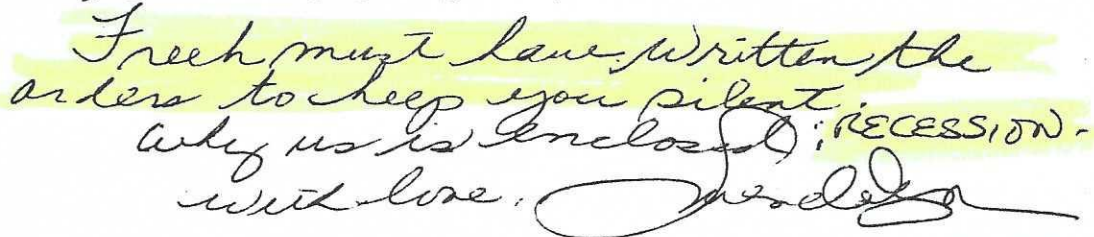 Freeh must have written the
orders to keep you silent.
Why us is enclosed: RECESSION.
with love, Gwendolyn